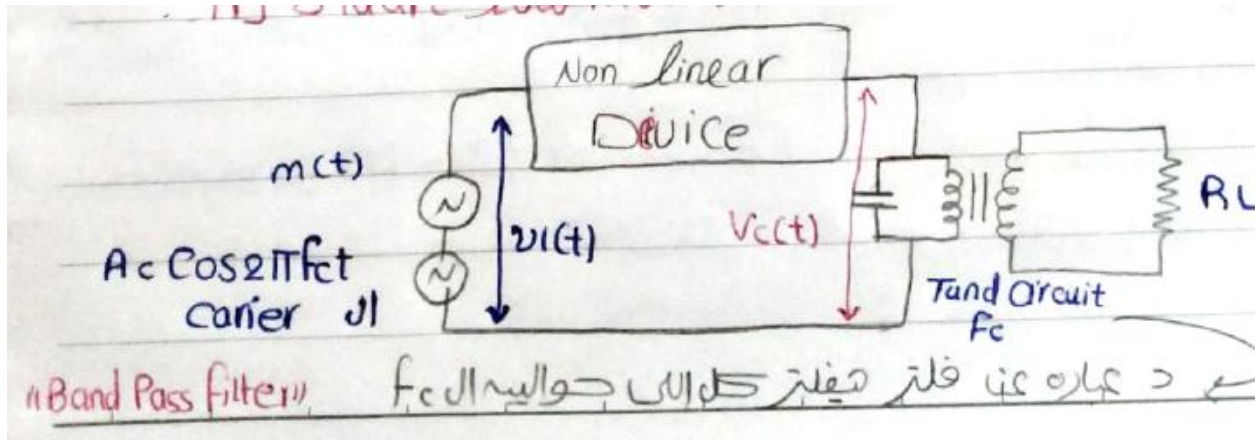 Non linear
Device
m(t)
Ac Cos2πfct
ال Carier
v1(t)
Vc(t)
RL
Tund Circuit
Fc
"Band Pass filter"
د عباره عن فلتر هيفلتر كل اللى حواليه ال fc